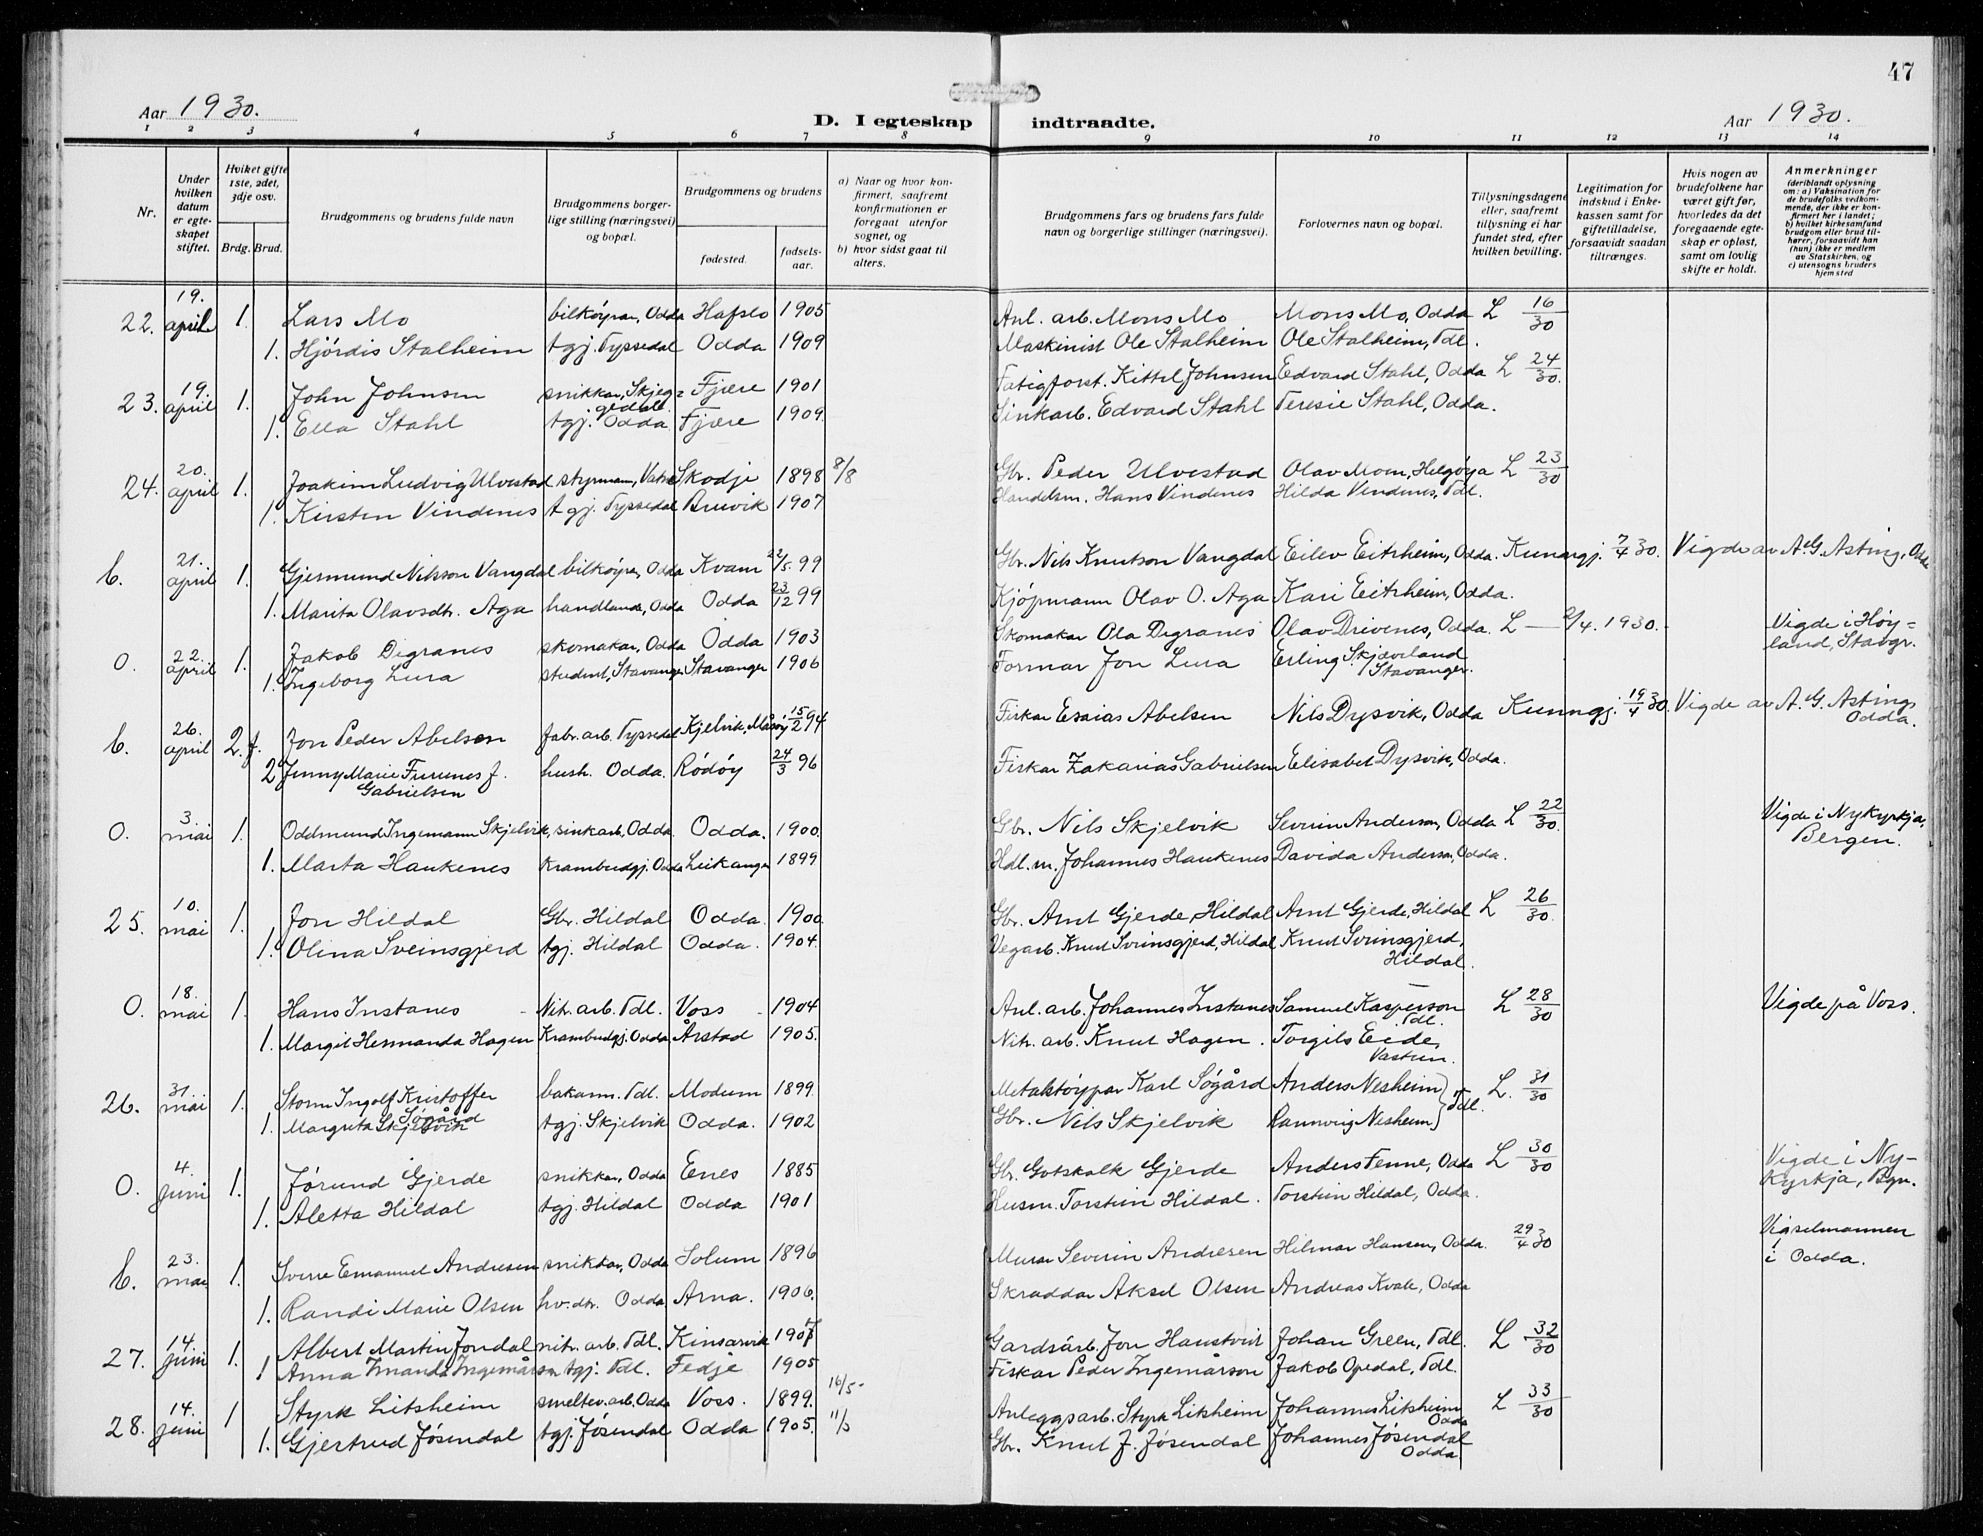 47
Aar 1930.
D. I egteskap indtraadte.
Aar 1930.
1 2 3 4 5 6 7 8 9 10 11 12 13 14
Nr.
Under hvilken datum er egteskapet stiftet.
Hviket gifte 1ste, 2det, 3dje osv.
Brdg. Brud.
Brudgommens og brudens fulde navn
Brudgommens borgerlige stilling (næringsvei) og bopæl.
Brudgommens og brudens
fødested.
fødselsaar.
a) Naar og hvor konfirmert, saafremt konfirmationen er foregaat utenfor sognet, og
b) hvor sidst gaat til alters.
Brudgommens fars og brudens fars fulde navn og borgerlige stillinger (næringsvei).
Forlovernes navn og bopæl.
Tillysningsdagene eller, saafremt tillysning ei har fundet sted, efter hvilken bevilling.
Legitimation for indskud i Enkekassen samt for giftetilladelse, forsaavidt saadan tiltrænges.
Hvis nogen av brudefolkene har været gift før, hvorledes da det foregaaende egteskap er opløst, samt om lovlig skifte er holdt.
Anmerkninger (deriblandt oplysning om: a) Vaksination for de brudefolks vedkommende, der ikke er konfirmert her i landet; b) hvilket kirkesamfund brudgom eller brud tilhører, forsaavidt han (hun) ikke er medlem av Statskirken, og c) utensogns bruders hjemsted
22. 19. april 1. Lars Mo bilkøyrar, Odda Hafslo 1905 Anl. arb. Mons Mo Mons Mo, Odda L 16/30
1. Hjördis Stalheim tgj. Tyssedal Odda 1909 Maskinist Ole Stalheim Ole Stalheim, Tdl.
23. 19. april 1. John Johnsen snikkar, Skjeggedal Fjære 1901 Fatigforst. Kittel Johnsen Edvard Stahl, Odda L 24/30.
1. Ella Stahl tgj. Odda Fjære 1909 Sinkarb. Edvard Stahl Teresie Stahl, Odda.
24. 20. april 1. Joakim Ludvig Ulvestad styrmann, Skodje 1898 8/8 Gbr. Peder Ulvestad Olav Moen, Helgøya L 23/30
1. Kirsten Vindenes tgj. Tyssedal Bruvik 1907 Handelsm. Hans Vindenes Hilda Vindenes, Tdl.
b. 21. april 1. Gjermund Nilsson Vangdal bilkøyrar, Odda Kvam 22/5.99 Gbr. Nils Knutson Vangdal Eilev Eitrheim, Odda. Kunngj. 7/4 30. Vigde av A. G. Asting, Odda
1. Marita Olavsdtr. Aga handlande, Odda Odda 23/12 99 Kjøpmann Olav O. Aga Kari Eitrheim, Odda.
0. 22. april 1. Jakob Digranes skomakar, Odda Odda 1903 Skomakar Ola Digranes Olav Drivenes, Odda. L — 2/4. 1930. Vigde i Høyland, Stavgr.
1. Ingeborg Lura student, Stavanger Stavanger 1906 Formar Jon Lura Erling Skjæveland Stavanger.
b. 26. april 2. f. Jon Peder Abelsen fabr. arb. Tyssedal Kjelvik, Måsøy 15/2 94 Fiskar Esaias Abelsen Nils Dysvik, Odda Kunngj. 19/4 30. Vigde av A. G. Asting Odda.
2 Jenny Marie Furenes f. Gabrielsen hush. Odda. Rödöy 24/3 96 Fiskar Zakarias Gabrielsen Elisabet Dysvik, Odda.
0. 3. mai 1. Oddmund Ingemann Skjelvik, sinkarb, Odda Odda. 1900. Gbr. Nils Skjelvik Severin Anderson, Odda L 22/30. Vigde i Nykyrkja, Bergen.
1. Marta Haukenes Krambudgj. Odda Leikanger 1899 Hdl. m. Johannes Haukenes Davida Anderson, Odda.
25. 10. mai 1. Jon Hildal Gbr. Hildal Odda. 1900. Gbr. Arnt Gjerde, Hildal Arnt Gjerde, Hildal L 26/30.
1. Olina Sveinsgjerd tgj. Hildal Odda. 1904. Vegarb. Knut Sveinsgjerd, Hildal Knut Sveinsgjerd, Hildal.
0. 18. mai 1. Hans Instanes Nitr. arb. Tdl. Voss 1904 Anl. arb. Johannes Instanes Samuel Kasperson Tdl. L 28/30 Vigde på Voss.
1. Margit Hermanda Hagen Krambudgj. Odda Årstad 1905. Nitr. arb. Knut Hagen. Torgils Eide,
26. 31. mai 1. Storm Ingolf Kristoffer Søgård bakarm. Tdl. Modum 1899. Metaltøypar Karl Søgård Anders Nesheim L. 31/30
1. Margreta Skjelvik tgj. Skjelvik Odda. 1902 Gbr. Nils Skjelvik Rannveig Nesheim Tdl.
0. 4. juni 1. Jørund Gjerde snikkar, Odda Enes 1885 Gbr. Gotskalk Gjerde Anders Tenne, Odda L 30/30 Vigde i Nykyrkja, Bgn.
1. Aletta Hildal tgj. Hildal Odda 1901 Husm. Torstein Hildal. Torstein Hildal, Odda.
b. 23. mai 1. Sverre Emanuel Andresen snikkar, Odda Solum 1896 Murar Severin Andresen Hilmar Hansen, Odda. 29/4 30 Vigselmannen i Odda.
1. Randi Marie Olsen hv. dtr. Odda Arna. 1906. Skraddar Aksel Olsen Andreas Kvale, Odda
27. 14. juni 1. Albert Martin Jondal nitr. arb. Tdl. Kinsarvik 1907 Gardsarb. Jon Haustveit Johan Green, Tdl. L 32/30
1 Anna Amanda Ingemårson tgj. Tdl. Fedje 1905 Fiskar Peder Ingemårson Jakob Opedal, Tdl.
28. 14. juni 1 Styrk Litsheim smeltev. arb. Odda Voss. 1899. 16/5- Anleggsarb. Styrk Litsheim Johannes Litsheim Odda L 33/30
1. Gjertrud Jøsendal tgj. Jøsendal Odda 1905. 11/5 Gbr. Knut J. Jøsendal Johannes Jøsendal Odda.